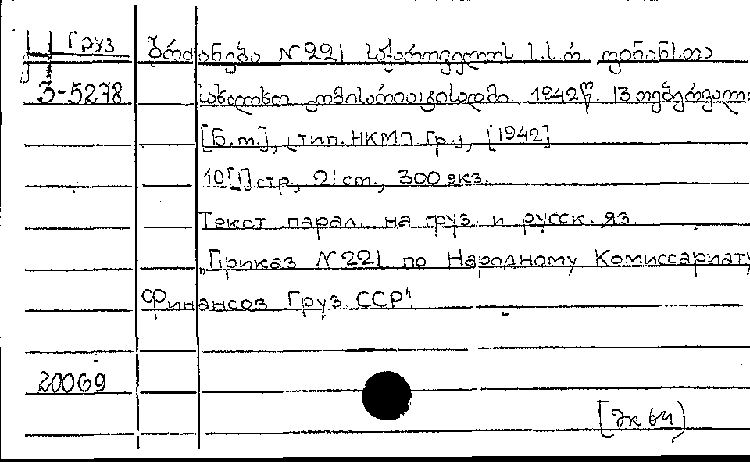 Груз ბრძანება N 221 საქართველოს ს.ს.რ. ფინანსთა
3-5278 სახალხო კომისარიატისადმი 1942 წ. 13 თებერვალი
[Б.м.], [тип. НКМП Гр.], [1942]
10 [1] стр., 21 cm., 300 экз.
Текст парал. на груз. и русск. яз.
„Приказ N 221 по Народному Комиссариату
Финансов Груз. ССР"
20069